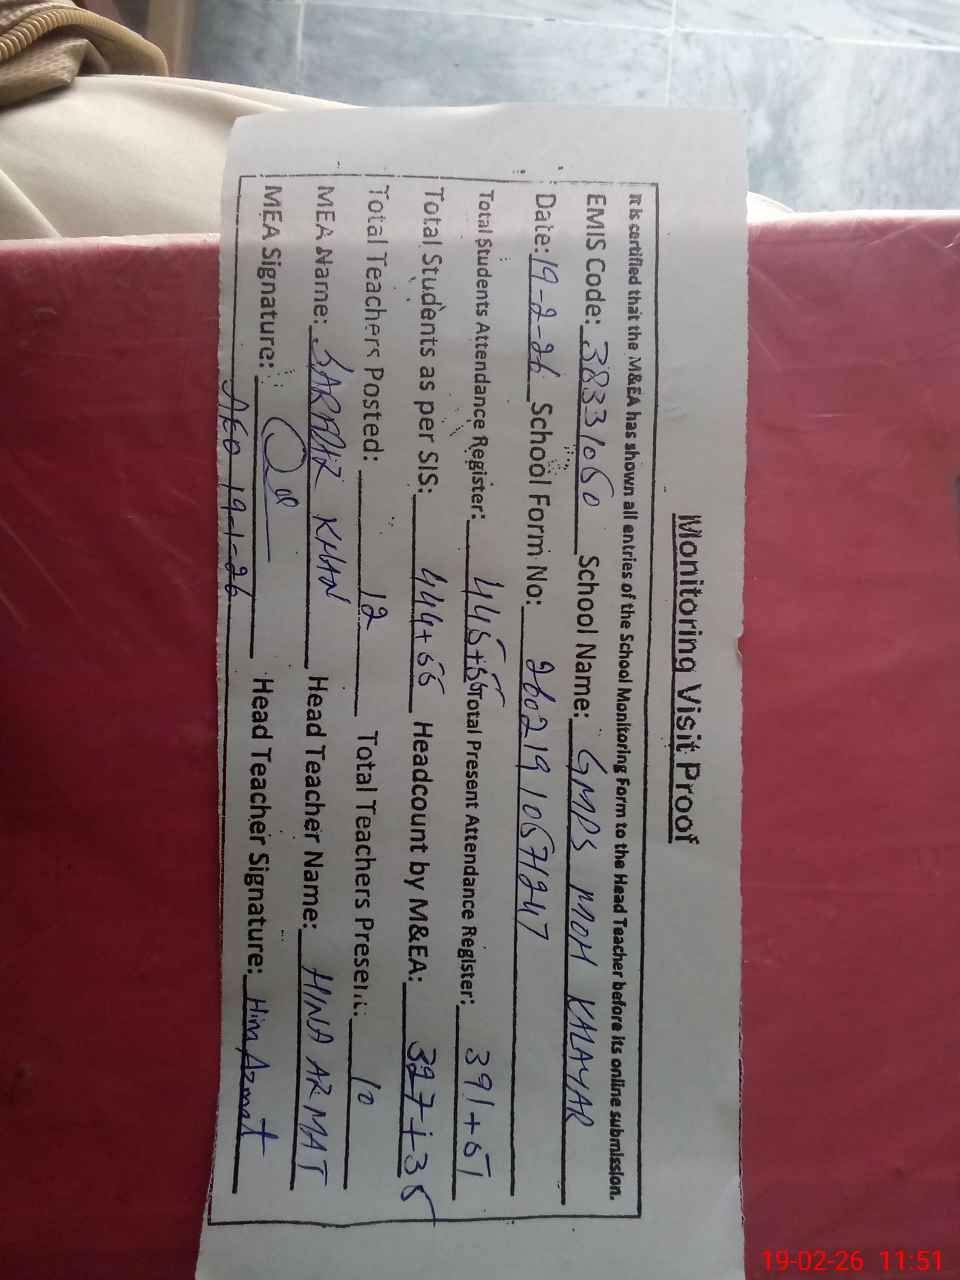 Monitoring Visit Proof
It is certified that the M&EA has shown all entries of the School Monitoring Form to the Head Teacher before its online submission.
EMIS Code: 38331050 School Name: GMPS MOH KALAYAR
Date: 19-2-26 School Form No: 26021910571247
Total Students Attendance Register: 445+56 Total Present Attendance Register: 391+51
Total Students as per SIS: 444+56 Headcount by M&EA: 327+35
Total Teachers Posted: 12 Total Teachers Present: 10
MEA Name: SARDAR KHAN Head Teacher Name: HINA AZMAT
MEA Signature: Head Teacher Signature: Hina Azmat
AEO 19-1-26
19-02-26 11:51